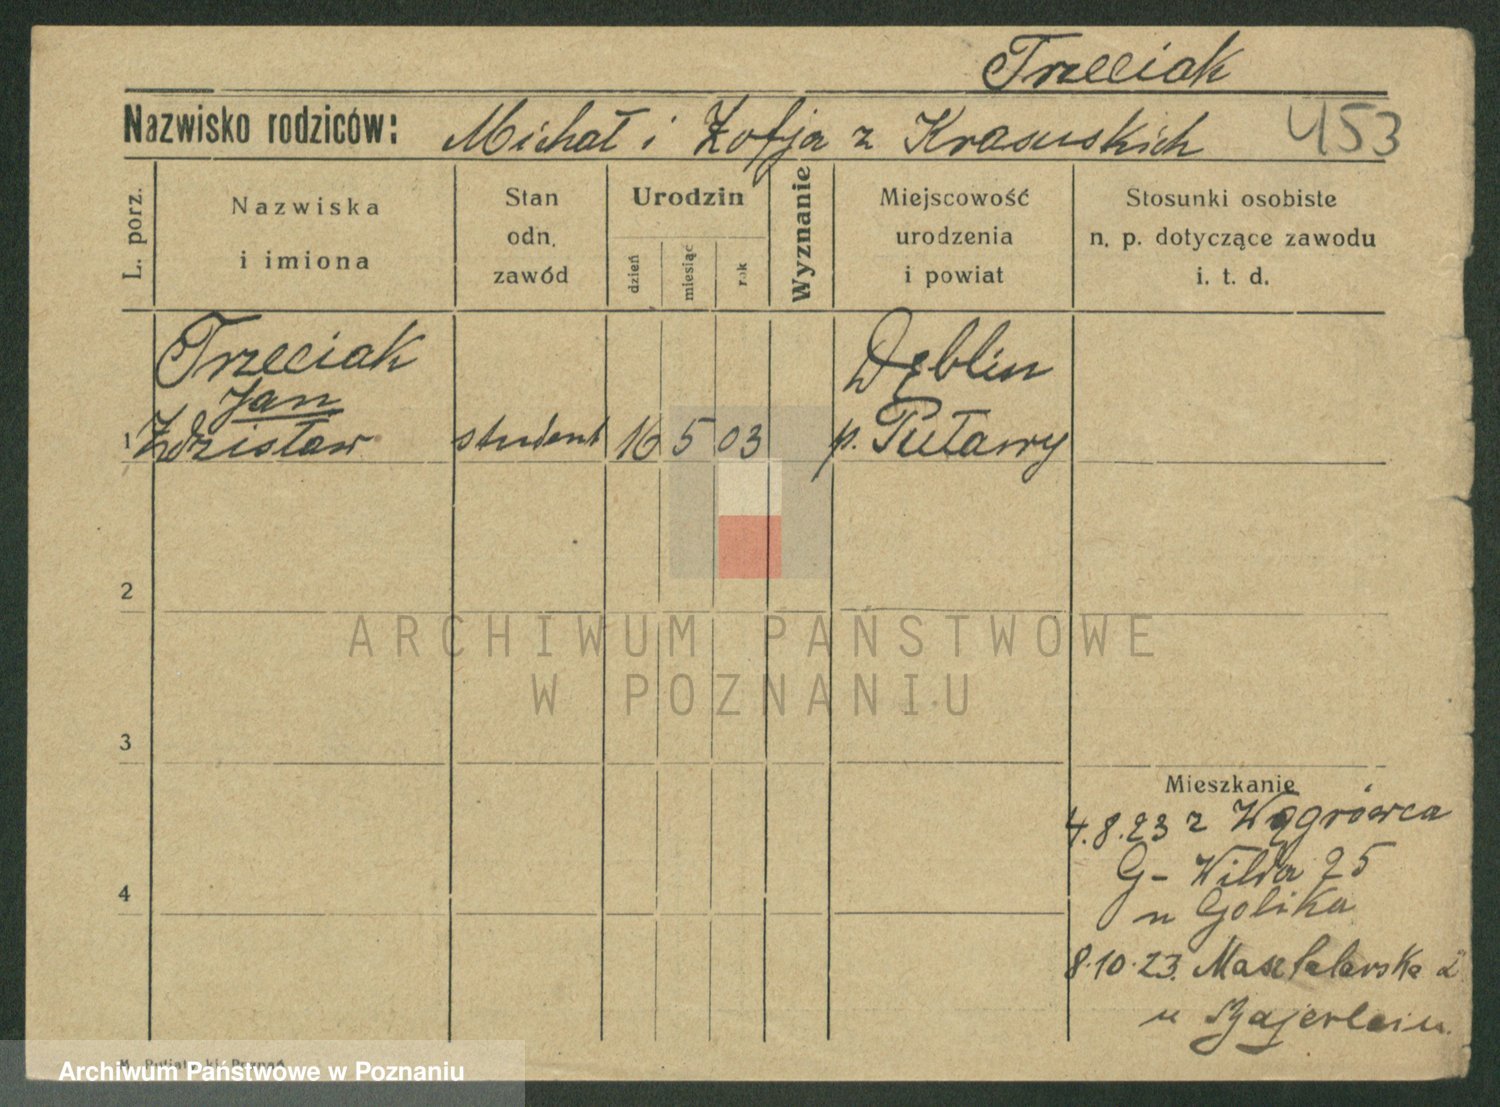 Trzeciak
Nazwisko rodziców: Michał i Zofja z Krasuskich 453
L. porz.
Nazwiska
i imiona
Stan
odn.
zawód
Urodzin
dzień
miesiąc
rok
Wyznanie
Miejscowość
urodzenia
i powiat
Stosunki osobiste
n. p. dotyczące zawodu
i. t. d.
Trzeciak
Jan
1 Zdzisław student 16 5 03
Dęblin
p. Puławy
2
3
4
Mieszkanie
4.8.23 z Wągrówca
G- Wilda 25
u Golika
8.10.23. Masztalarska
u
ARCHIWUM PAŃSTWOWE
W POZNANIU
Poznań
Archiwum Państwowe w Poznaniu